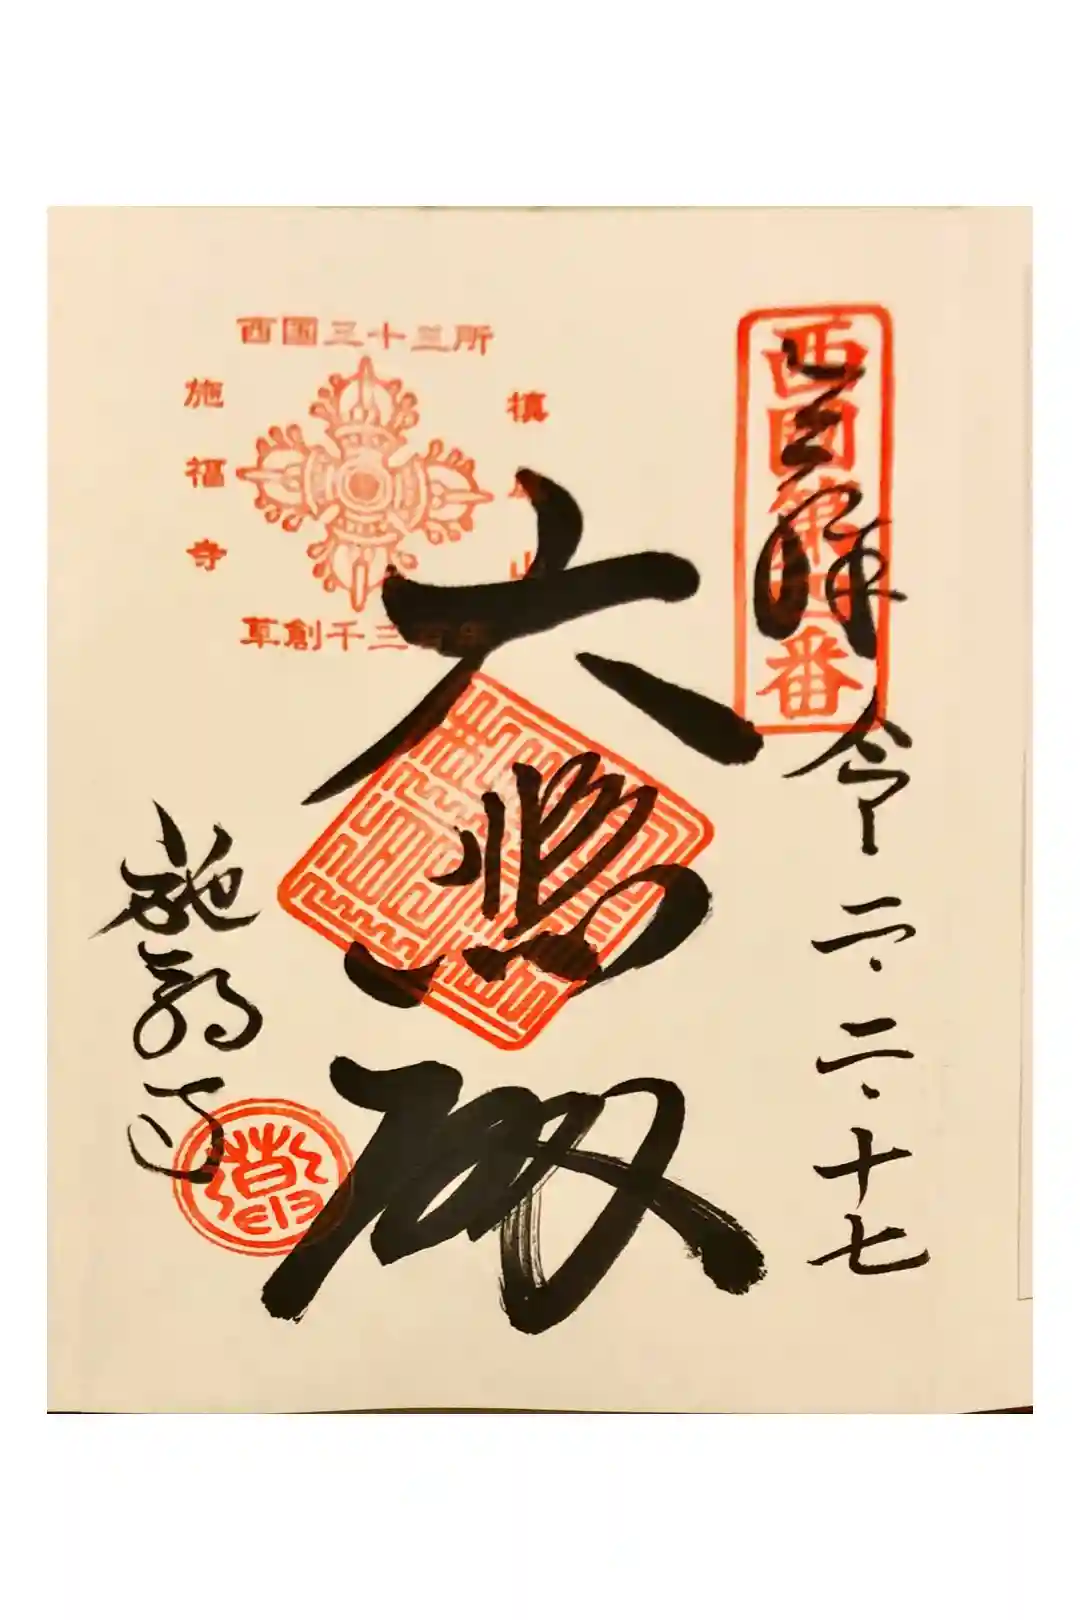 西国第四番
奉拝
令二.二.十七
大悲殿
西国三十三所
槙尾山
施福寺
草創千三百年
施福寺